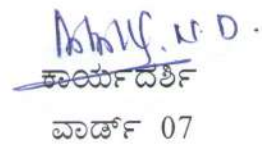 N.D.
ಕಾರ್ಯದರ್ಶಿ
ವಾರ್ಡ್ 07